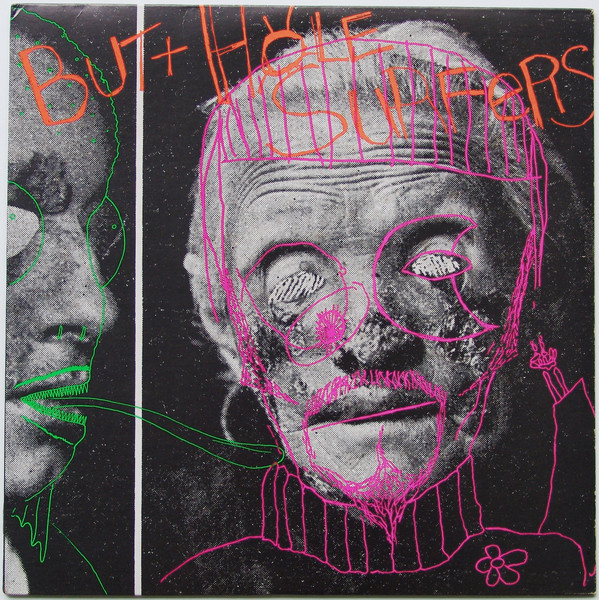 BUTT HOLE
SURFERS